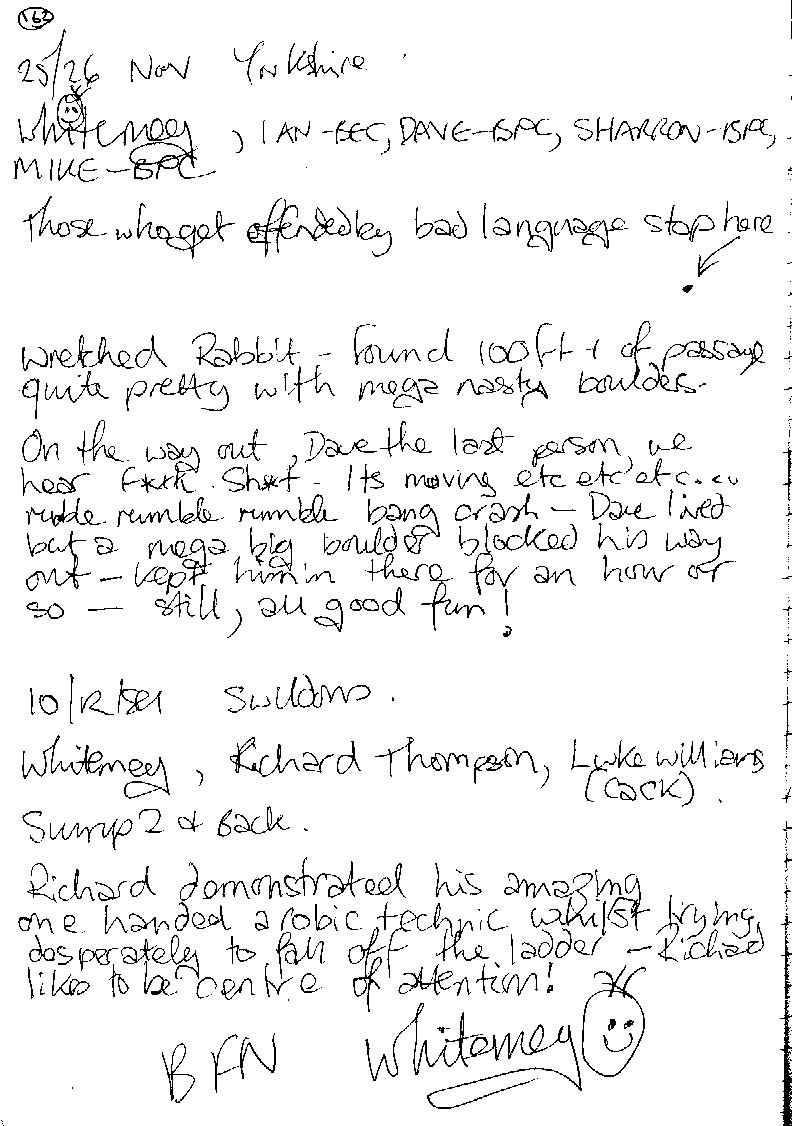 162
25/26 Nov Yorkshire.
Whitemey, IAN-BEC, DAVE-BPC, SHARRON-BPC,
MIKE-BPC
Those who get offended by bad language stop here
Wretched Rabbit - found 100ft + of passage
quite pretty with mega nasty boulders.
On the way out, Dave the last person, we
hear F*rk. Sh*t - Its moving etc etc etc....
rumble rumble rumble bang crash - Dave lived
but a mega big boulder blocked his way
out - kept him in there for an hour or
so - still, all good fun!
Swildons.
Whitemey, Richard Thompson, Luke Williams
(CACK).
Sump 2 & Back.
Richard demonstrated his amazing
one handed arobic technic whilst trying
desperately to fall off the ladder - Richad
likes to be centre of attention!
BFN Whitemey